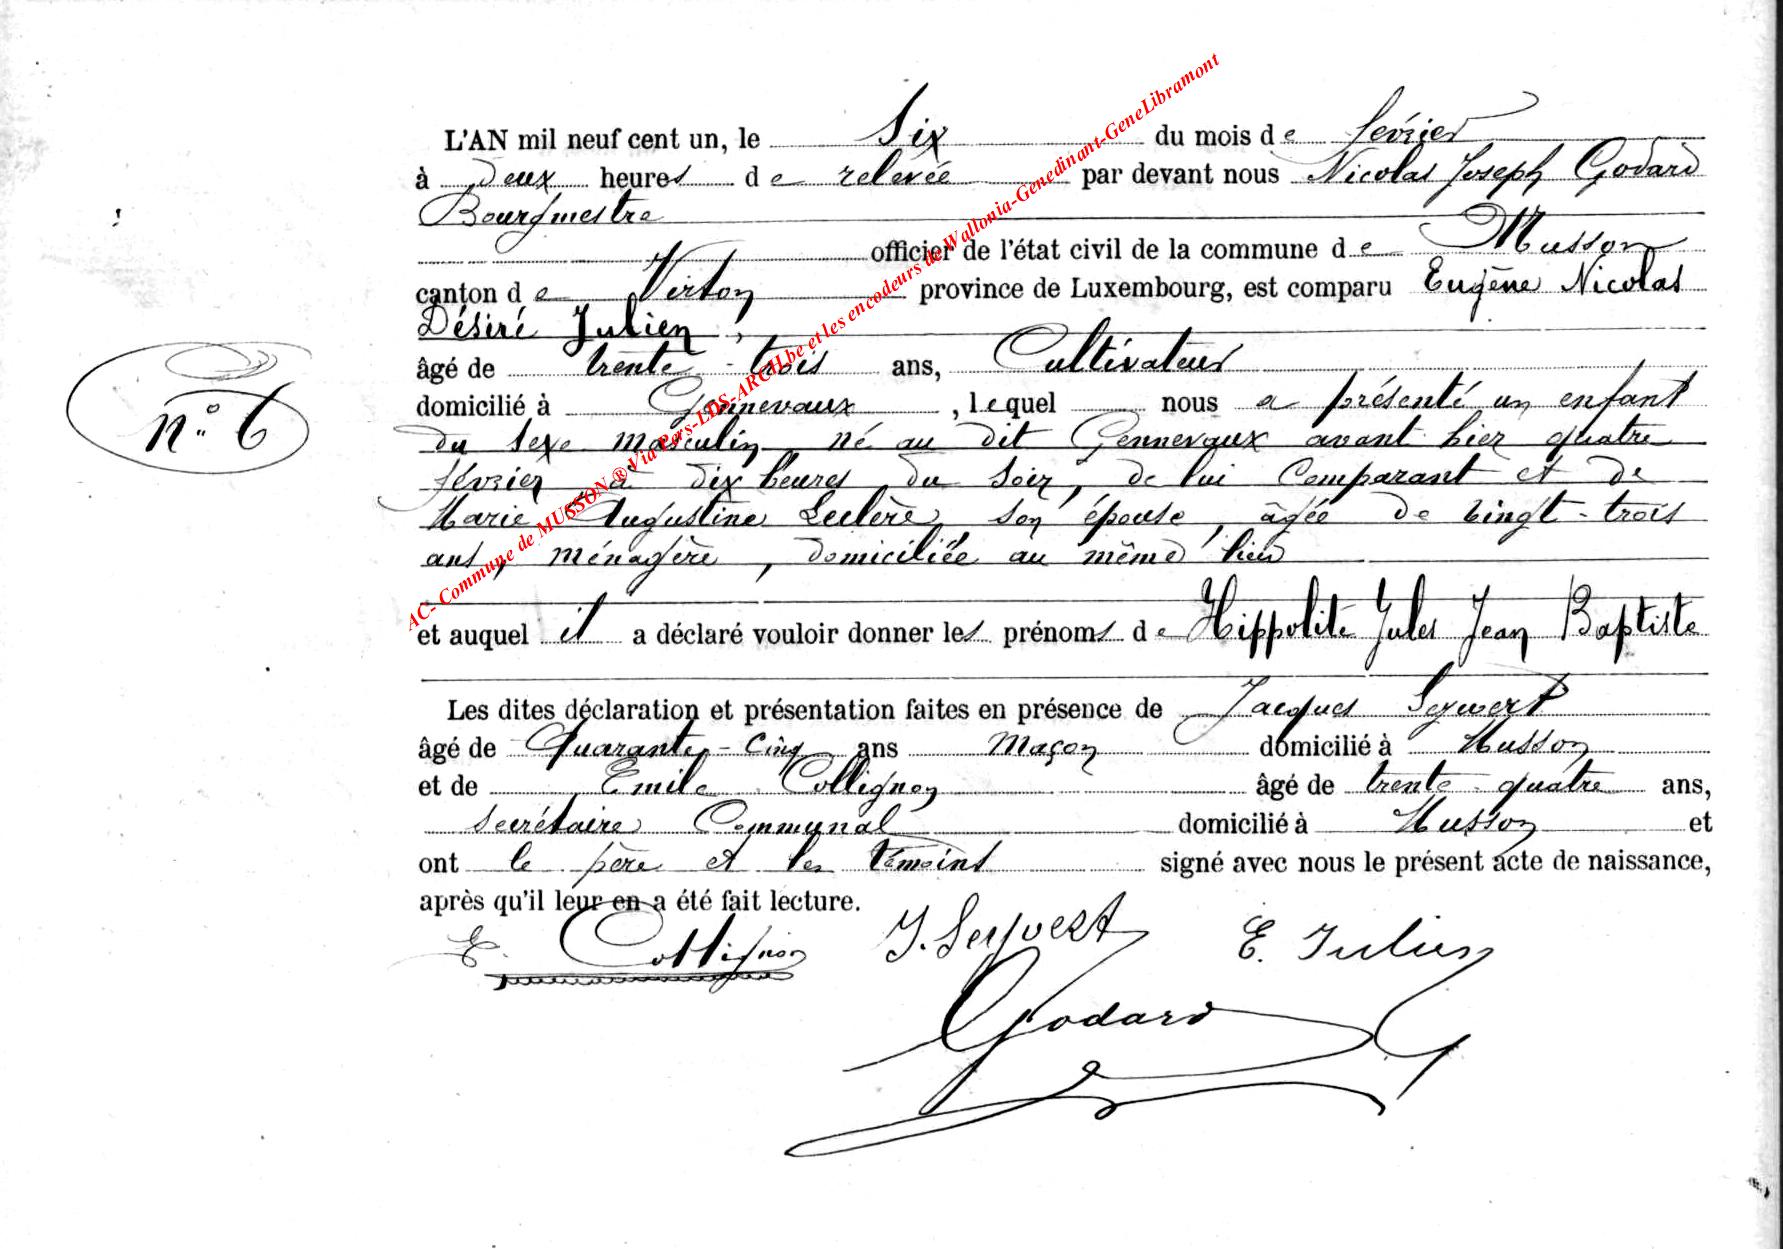 L'AN mil neuf cent un, le Six du mois de février
à deux heures de relevée par devant nous Nicolas Joseph Godard
Bourgmestre
officier de l'état civil de la commune de Musson
canton de Virton province de Luxembourg, est comparu Eugène Nicolas
Désiré Julien,
âgé de trente-trois ans, Cultivateur
domicilié à Gennevaux, lequel nous a présenté un enfant
n° 6
du sexe masculin né au dit Gennevaux avant hier quatre
février à dix heures du soir, de lui Comparant et de
Marie Augustine Leclère son épouse, âgée de vingt-trois
ans, ménagère, domiciliée au même lieu
et auquel il a déclaré vouloir donner les prénoms de Hippolite Jules Jean Baptiste
Les dites déclaration et présentation faites en présence de Jacques Seywert
âgé de Quarante-Cinq ans Maçon domicilié à Musson
et de Emile Collignon âgé de trente-quatre ans,
secrétaire Communal domicilié à Musson et
ont le père et les témoins signé avec nous le présent acte de naissance,
après qu'il leur en a été fait lecture.
E. Collignon J. Seywert E. Julien
Godard
AC- Commune de MUSSON ® Via Pers-LDS-ARCH.be et les encodeurs de Wallonia-Genedinant-GeneLibramont